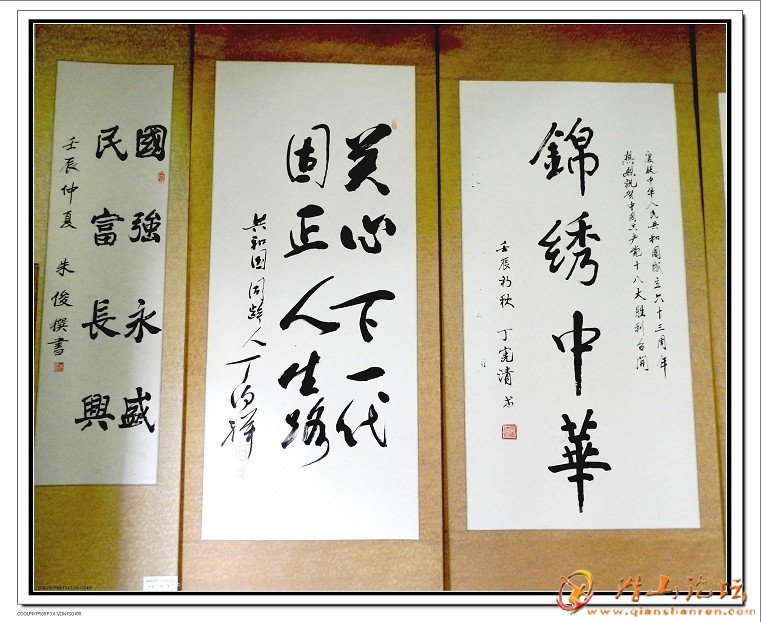 庆祝中华人民共和國成立六十三周年
热烈祝贺中国共产党十八大胜利召開
錦绣中華
壬辰初秋 丁宪清书
关心下一代
固正人生路
共和国同龄人丁
國強永盛
民富長興
壬辰仲夏 朱俊撰書
潜山论坛
www.qianshanren.com